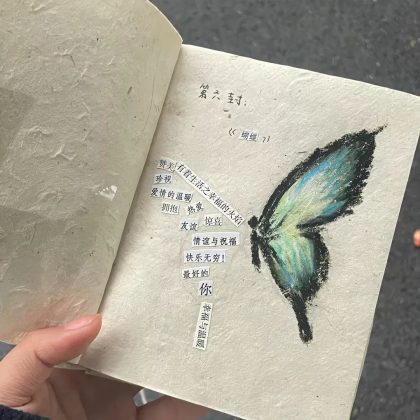 第六封:
《蝴蝶》
赞美有着生活之幸福的火焰
珍视
爱情的温暖
拥抱
惊喜
友谊
情谊与祝福
快乐无穷!
最好的
你
幸福与温暖